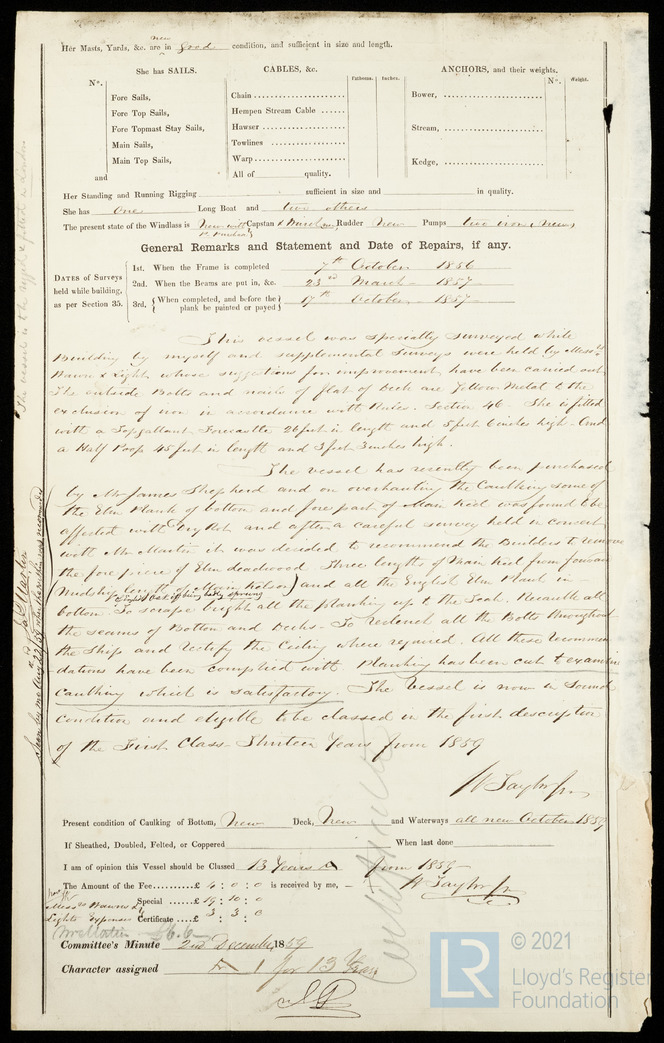 Her Masts, Yards, &c. are in new good condition, and sufficient in size and length.
She has SAILS.
CABLES, &c.
Fathoms.
Inches.
ANCHORS, and their weights.
Nº.
Weight.
Nº.
Fore Sails,
Fore Top Sails,
Fore Topmast Stay Sails,
Main Sails,
Main Top Sails,
and
Chain
Hempen Stream Cable
Hawser
Towlines
Warp
All of quality.
Bower,
Stream,
Kedge,
Her Standing and Running Rigging sufficient in size and in quality.
She has One Long Boat and two others
The present state of the Windlass is New with Capstan & Winch new Rudder New Pumps two iron (New)
General Remarks and Statement and Date of Repairs, if any.
DATES of Surveys held while building, as per Section 35.
1st. When the Frame is completed 7th October 1856
2nd. When the Beams are put in, &c. 23rd March 1857
3rd, { When completed, and before the plank be painted or payed } 17th October 1857
This vessel was specially surveyed while
Building by myself and supplemental Surveys were held by Messrs
Nawn & Light whose suggestions for improvement have been carried out
The outside Bolts and nails of flat of Deck are Yellow Metal to the
exclusion of iron in accordance with Rules. Section 46. She is fitted
with a Topgallant Forecastle 26 feet in length and 5 feet 6 inches high. And
a Half Poop 45 feet in length and 3 feet 3 inches high.
The vessel has recently been purchased
by Mr James Shepherd and on overhauling the Caulking some of
the Elm Plank of bottom and fore part of Main Keel was found to be
affected with dry Rot and after a careful survey held in concert
with Mr Martin it was decided to recommend the Builders to remove
the fore piece of Elm deadwood Three lengths of Main Keel from forward
(Midship length of Main Kelson) and all the English Elm Plank in
bottom. To scrape bright all the planking up to the Sank. Recaulk all
the seams of Bottom and Decks. To reclench all the Bolts throughout
the Ship and rectify the Ceiling where required. All these recommen
dations have been complied with Planking has been cut to examine
Caulking which is satisfactory. The Vessel is now in Sound
Condition and eligible to be classed in the first description
of the First Class Thirteen Years from 1859
W Taylor Jr
Seen by me
Present condition of Caulking of Bottom, New Deck, New and Waterways all new October 1859
If Sheathed, Doubled, Felted, or Coppered When last done
I am of opinion this Vessel should be Classed 13 Years A from 1859
The Amount of the Fee.....£ 4 : 0 : 0 is received by me,
W Taylor Jr
Special ....£ 19 : 10 : 0
Messrs Nawn &
Lights Expenses Certificate ....£ 3 : 3 : 0
Mr Martin £6.6
Committee's Minute 2nd December 1859
Character assigned A 1 for 13 Years
© 2021
LR
Lloyd's Register
Foundation